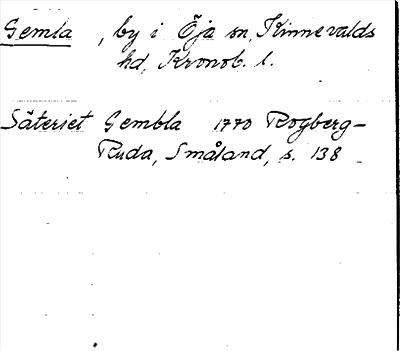 Gemla , by i Öja sn, Kinnevalds
hd, Kronob. l.
Säteriet Gembla 1770 Rogberg-
Ruda, Småland, s. 138